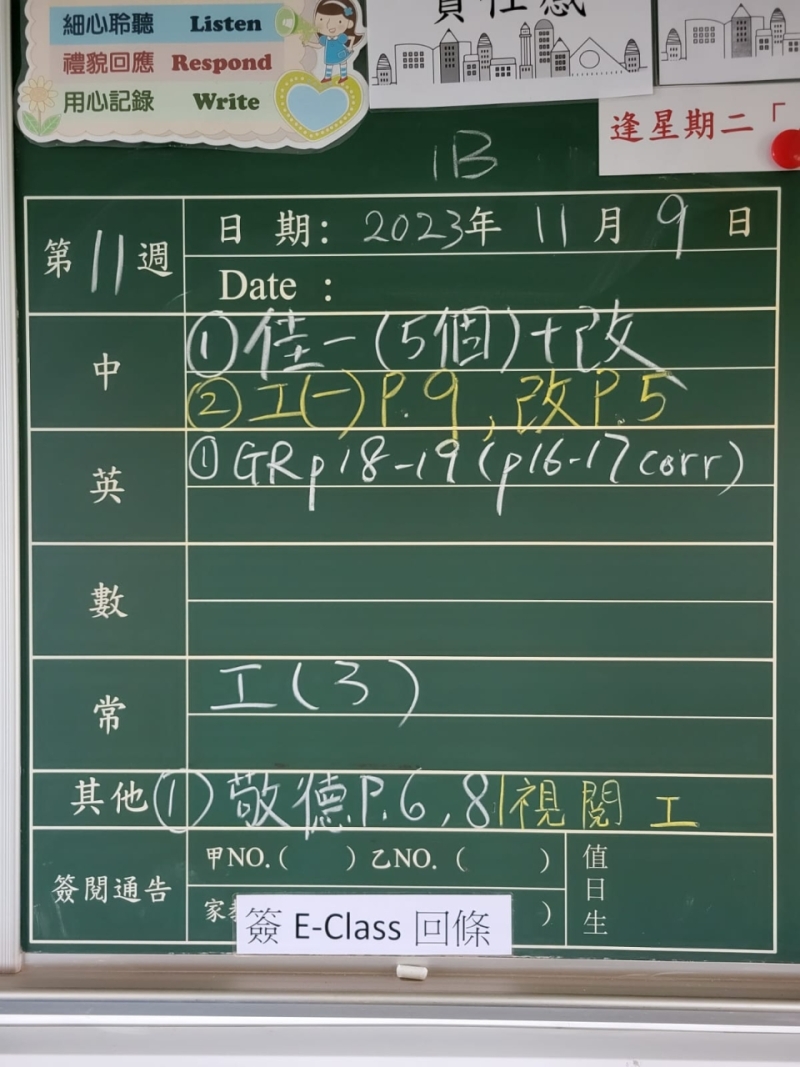 細心聆聽 Listen
禮貌回應 Respond
用心記錄 Write
責任感
逢星期二「
1B
第11週 日 期： 2023年 11 月 9 日
Date ：
中 ①佳一(5個)+改
②工(一)P.9，改P.5
英 ①GRp18-19(p16-17corr)
數
常 工(3)
其他 ①敬德P.6,8|視閱 工
簽閱通告 甲NO.( ) 乙NO. ( ) 值日生
家 )
簽 E-Class 回條